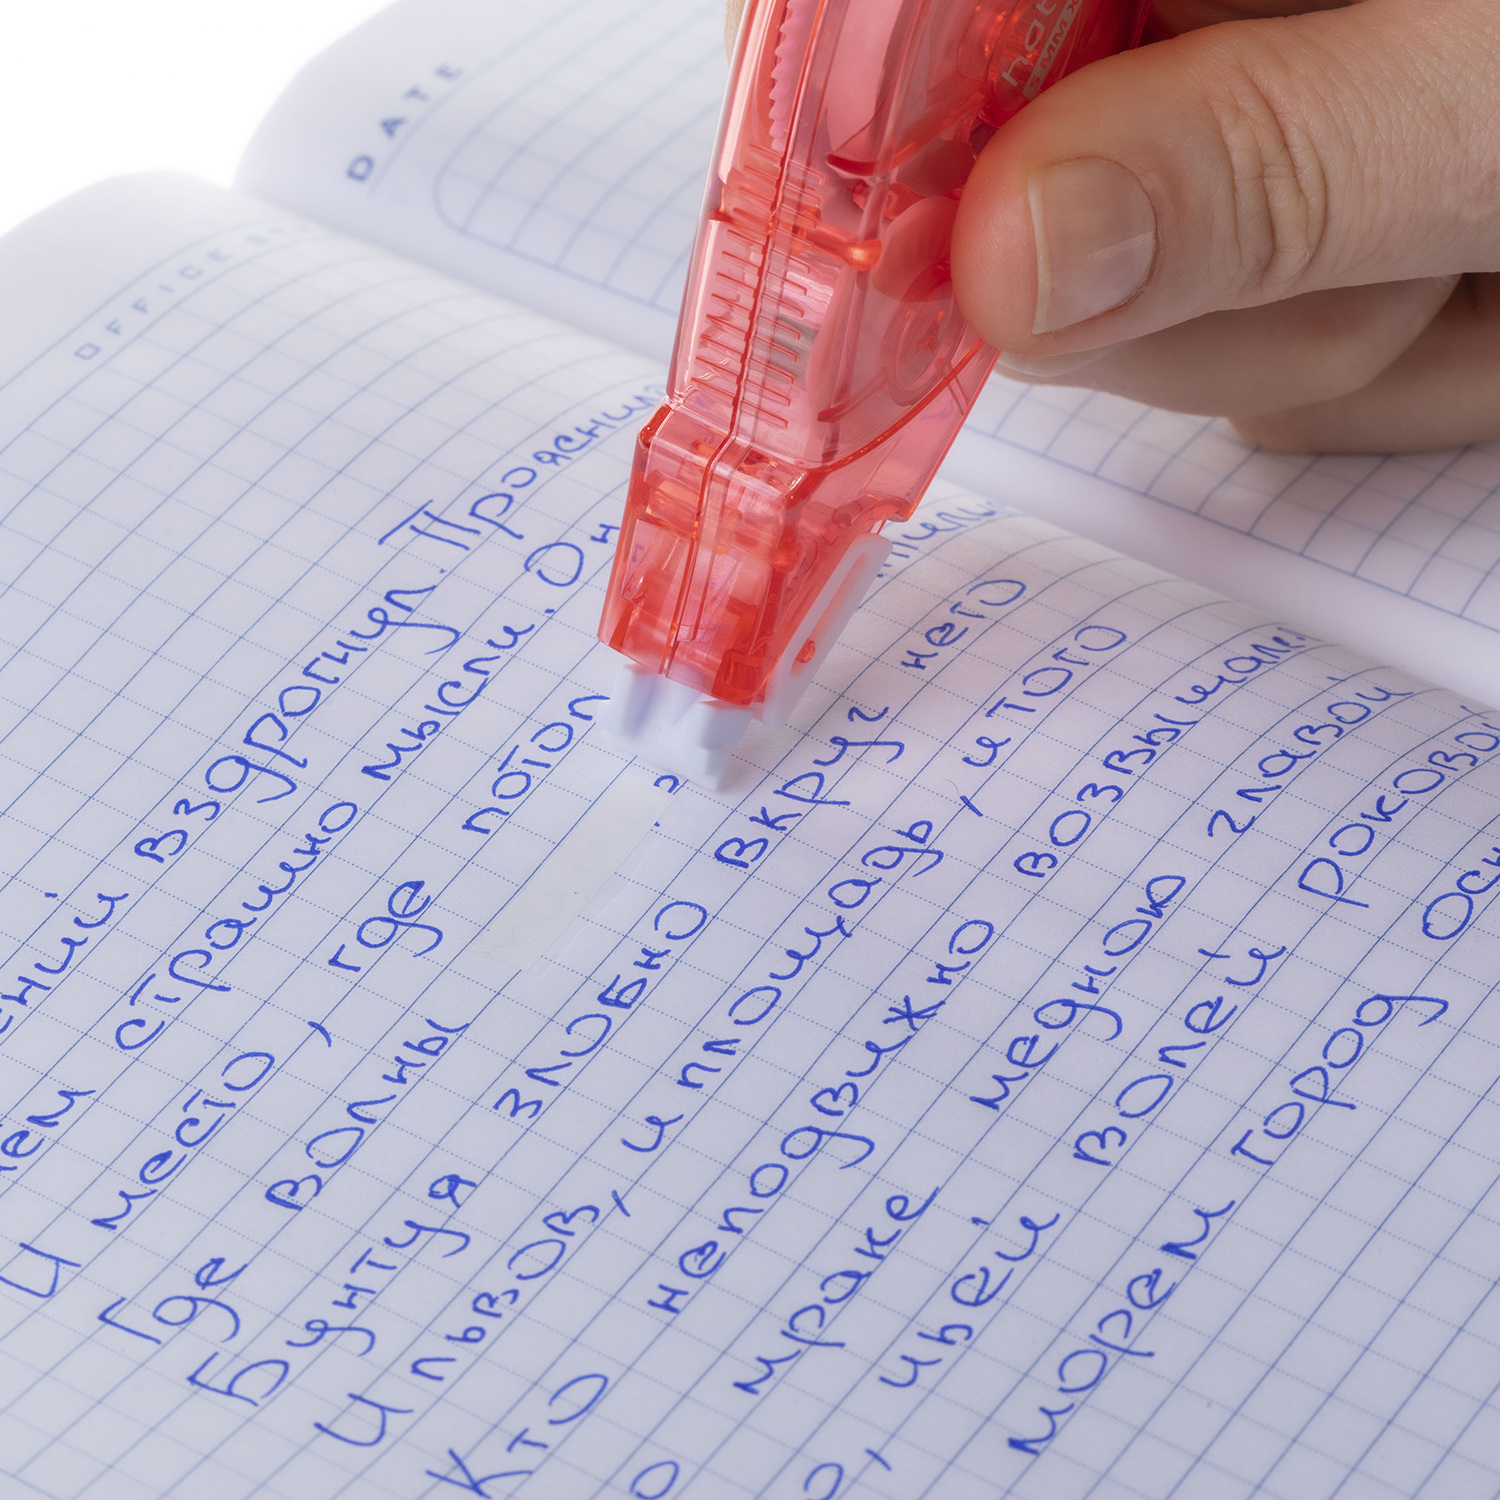 DATE
OFFICE
вздрогнул. Прояснил
страшно мысли. Он
И место, где потоп
Где волны
Бунтуя злобно вкруг него
И львов, и площадь, и того
Кто неподвижно возвышал
мраке медною главой
, чьей волей роковой
морем город